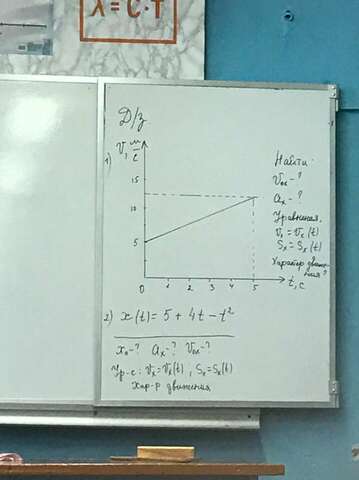 λ = c · T
Д/з
1)
V, м/с
15
10
5
0 1 2 3 4 5 t, с
Найти:
V₀ₓ - ?
aₓ - ?
Уравнения,
Vₓ = Vₓ(t)
Sₓ = Sₓ(t)
Характер движе-
ния?
2) x(t) = 5 + 4t - t²
x₀ - ? aₓ - ? V₀ₓ - ?
Ур-е: Vₓ = Vₓ(t), Sₓ = Sₓ(t)
Хар-р движения